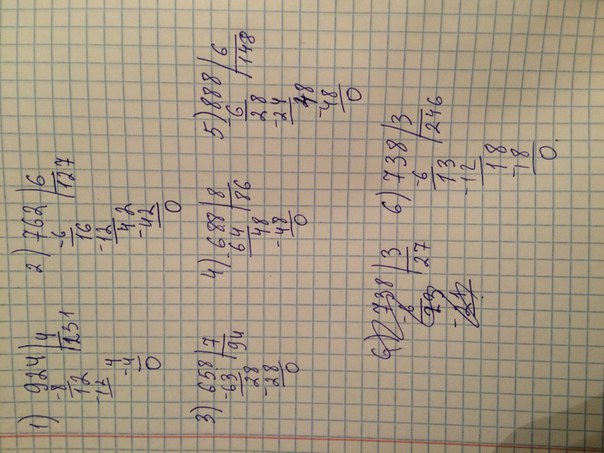 1) 924 | 4
-8 | 231
12
-12
4
-4
0
2) 762 | 6
-6 | 127
16
-12
42
-42
0
3) 658 | 7
-63 | 94
28
-28
0
4) 688 | 8
-64 | 86
48
-48
0
5) 888 | 6
6 | 148
28
-24
48
-48
0
6) 738 | 3
-6 | 27
6) 738 | 3
-6 | 246
13
-12
18
-18
0.